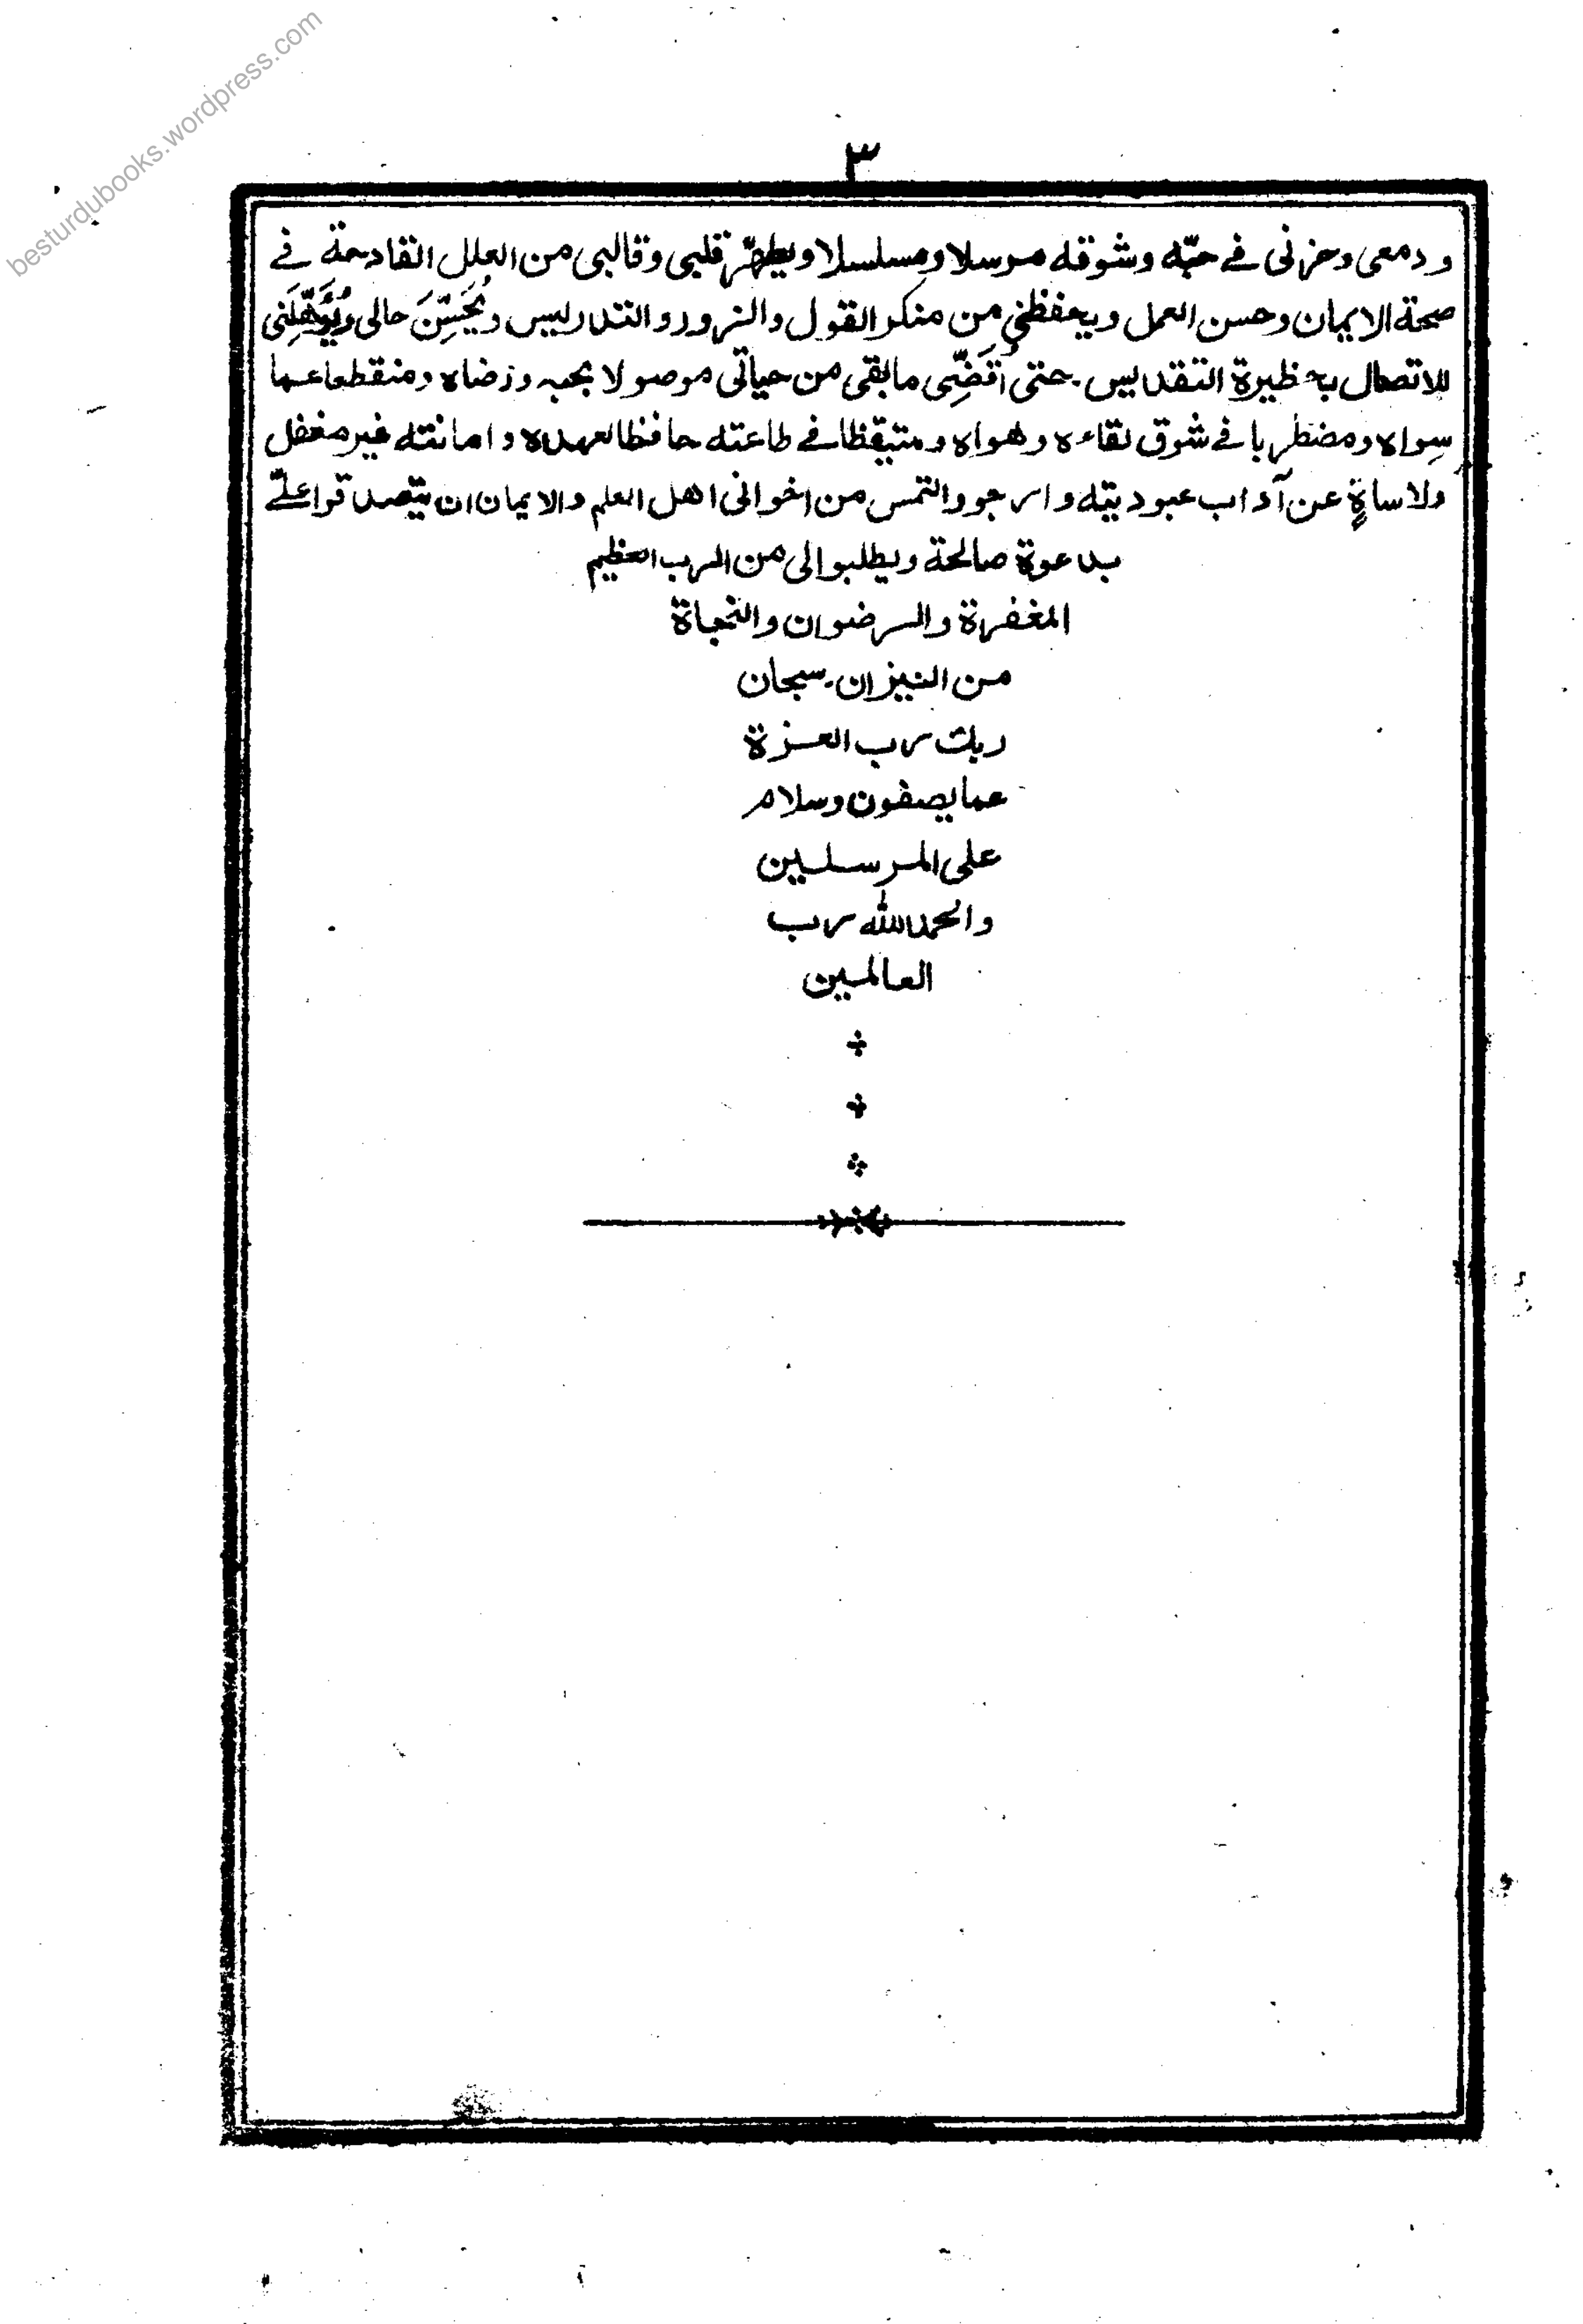 besturdubooks.wordpress.com
٣
ودمعى وحزنى فے حبّه وشوقه مرسلا ومسلسلا ويطهّر قلبى وقالبى من العلل القادحة فے
صحة الايمان وحسن العمل ويحفظنى من منكر القول والزور والتدليس ويُحَسِّنَ حالى ويُؤَهِّلَنى
للاتصال بحظيرة التقديس. حتى اُقَضِّى مابقى من حياتى موصولا بحبه ورضاه ومنقطعا عما
سِواه ومضطربا فے شوق لقاءه وهواه ومتيقظا فے طاعته حافظا لعهده وامانته غير مغفل
ولا ساهٍ عن آداب عبوديته وارجو والتمس من اخوانى اهل العلم والايمان ان يتصدقوا علىّ
بدعوة صالحة ويطلبوا لى من الرب العظيم
المغفرة والرضوان والنجاة
من النيران۔ سبحان
ربك رب العزة
عما يصفون وسلام
على المرسلين
والحمد لله رب
العالمين